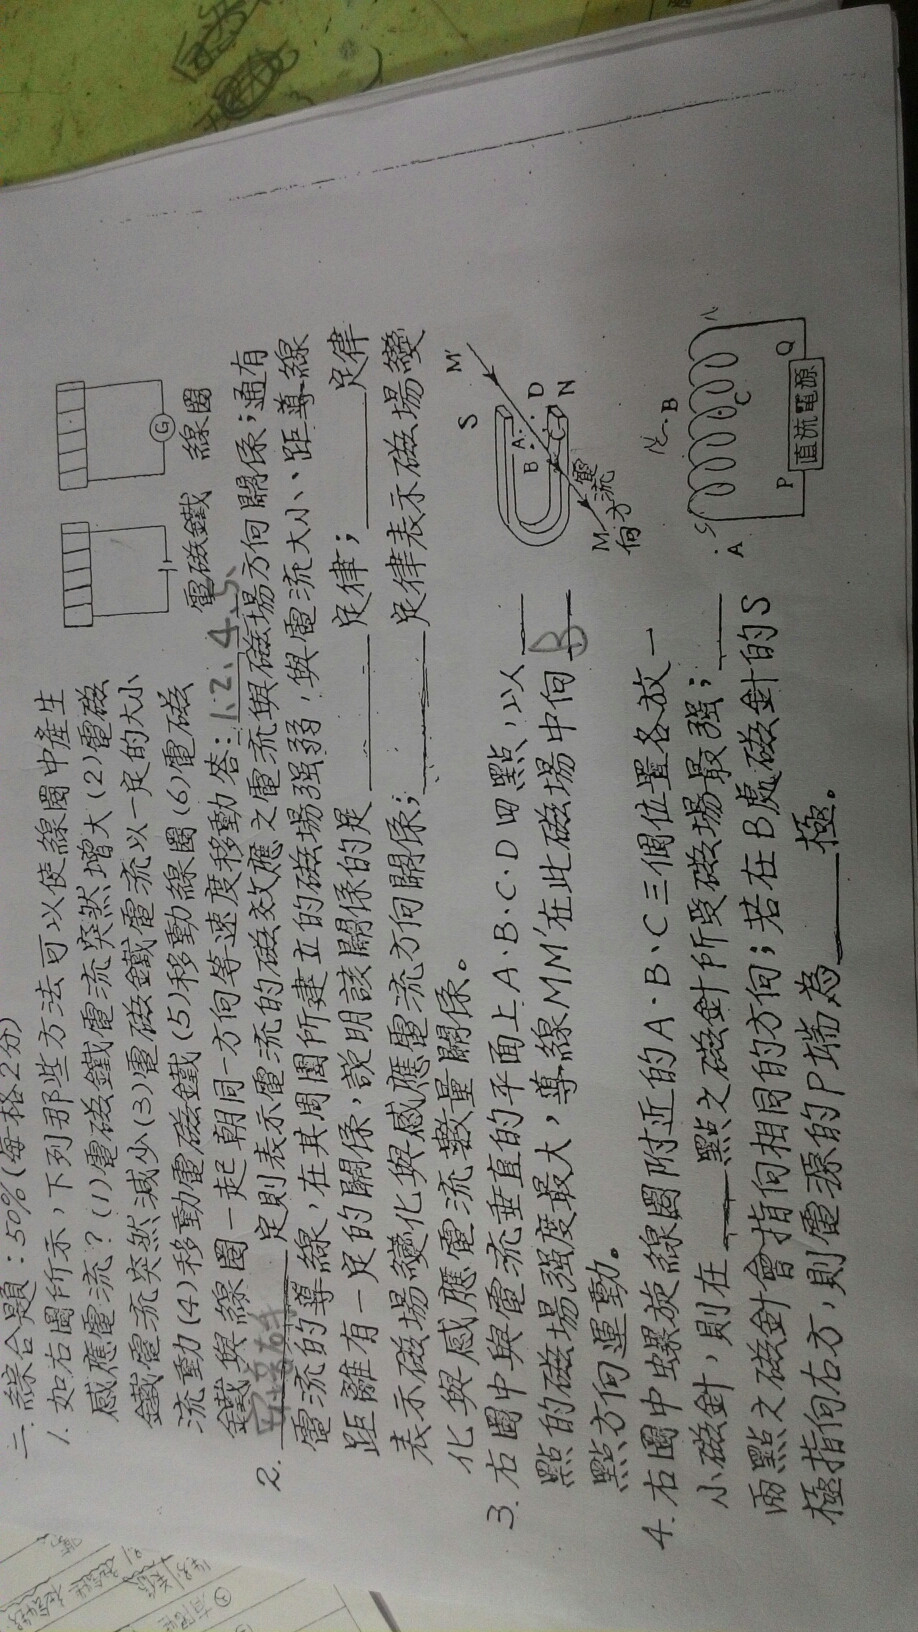 二.綜合題:50%(每格2分)
1. 如右圖所示,下列那些方法可以使線圈中產生
感應電流?(1)電磁鐵電流突然增大(2)電磁
鐵電流突然減少(3)電磁鐵電流以一定的大小
流動(4)移動電磁鐵(5)移動線圈(6)電磁
鐵與線圈一起朝同一方向等速度移動答:1.2.4.5、
電磁鐵 線圈
G
2. 定則表示電流的磁效應之電流與磁場方向關係;通有
電流的導線,在其周圍所建立的磁場強弱,與電流大小、距導線
距離有一定的關係,說明該關係的是 定律; 定律
表示磁場變化與感應電流方向關係; 定律表示磁場變
化與感應電流數量關係。
3. 右圖中與電流垂直的平面上A.B.C.D四點,以
點的磁場強度最大,導線MM'在此磁場中向B
點方向運動。
S
M'
A
B
C
D
N
M
電流
方向
4. 右圖中螺旋線圈附近的A.B、C三個位置各放一
小磁針,則在 點之磁針所受磁場最強;
兩點之磁針會指向相同的方向;若在B處磁針的S
極指向右方,則電源的P端為 極。
A
B
C
P
Q
直流電源